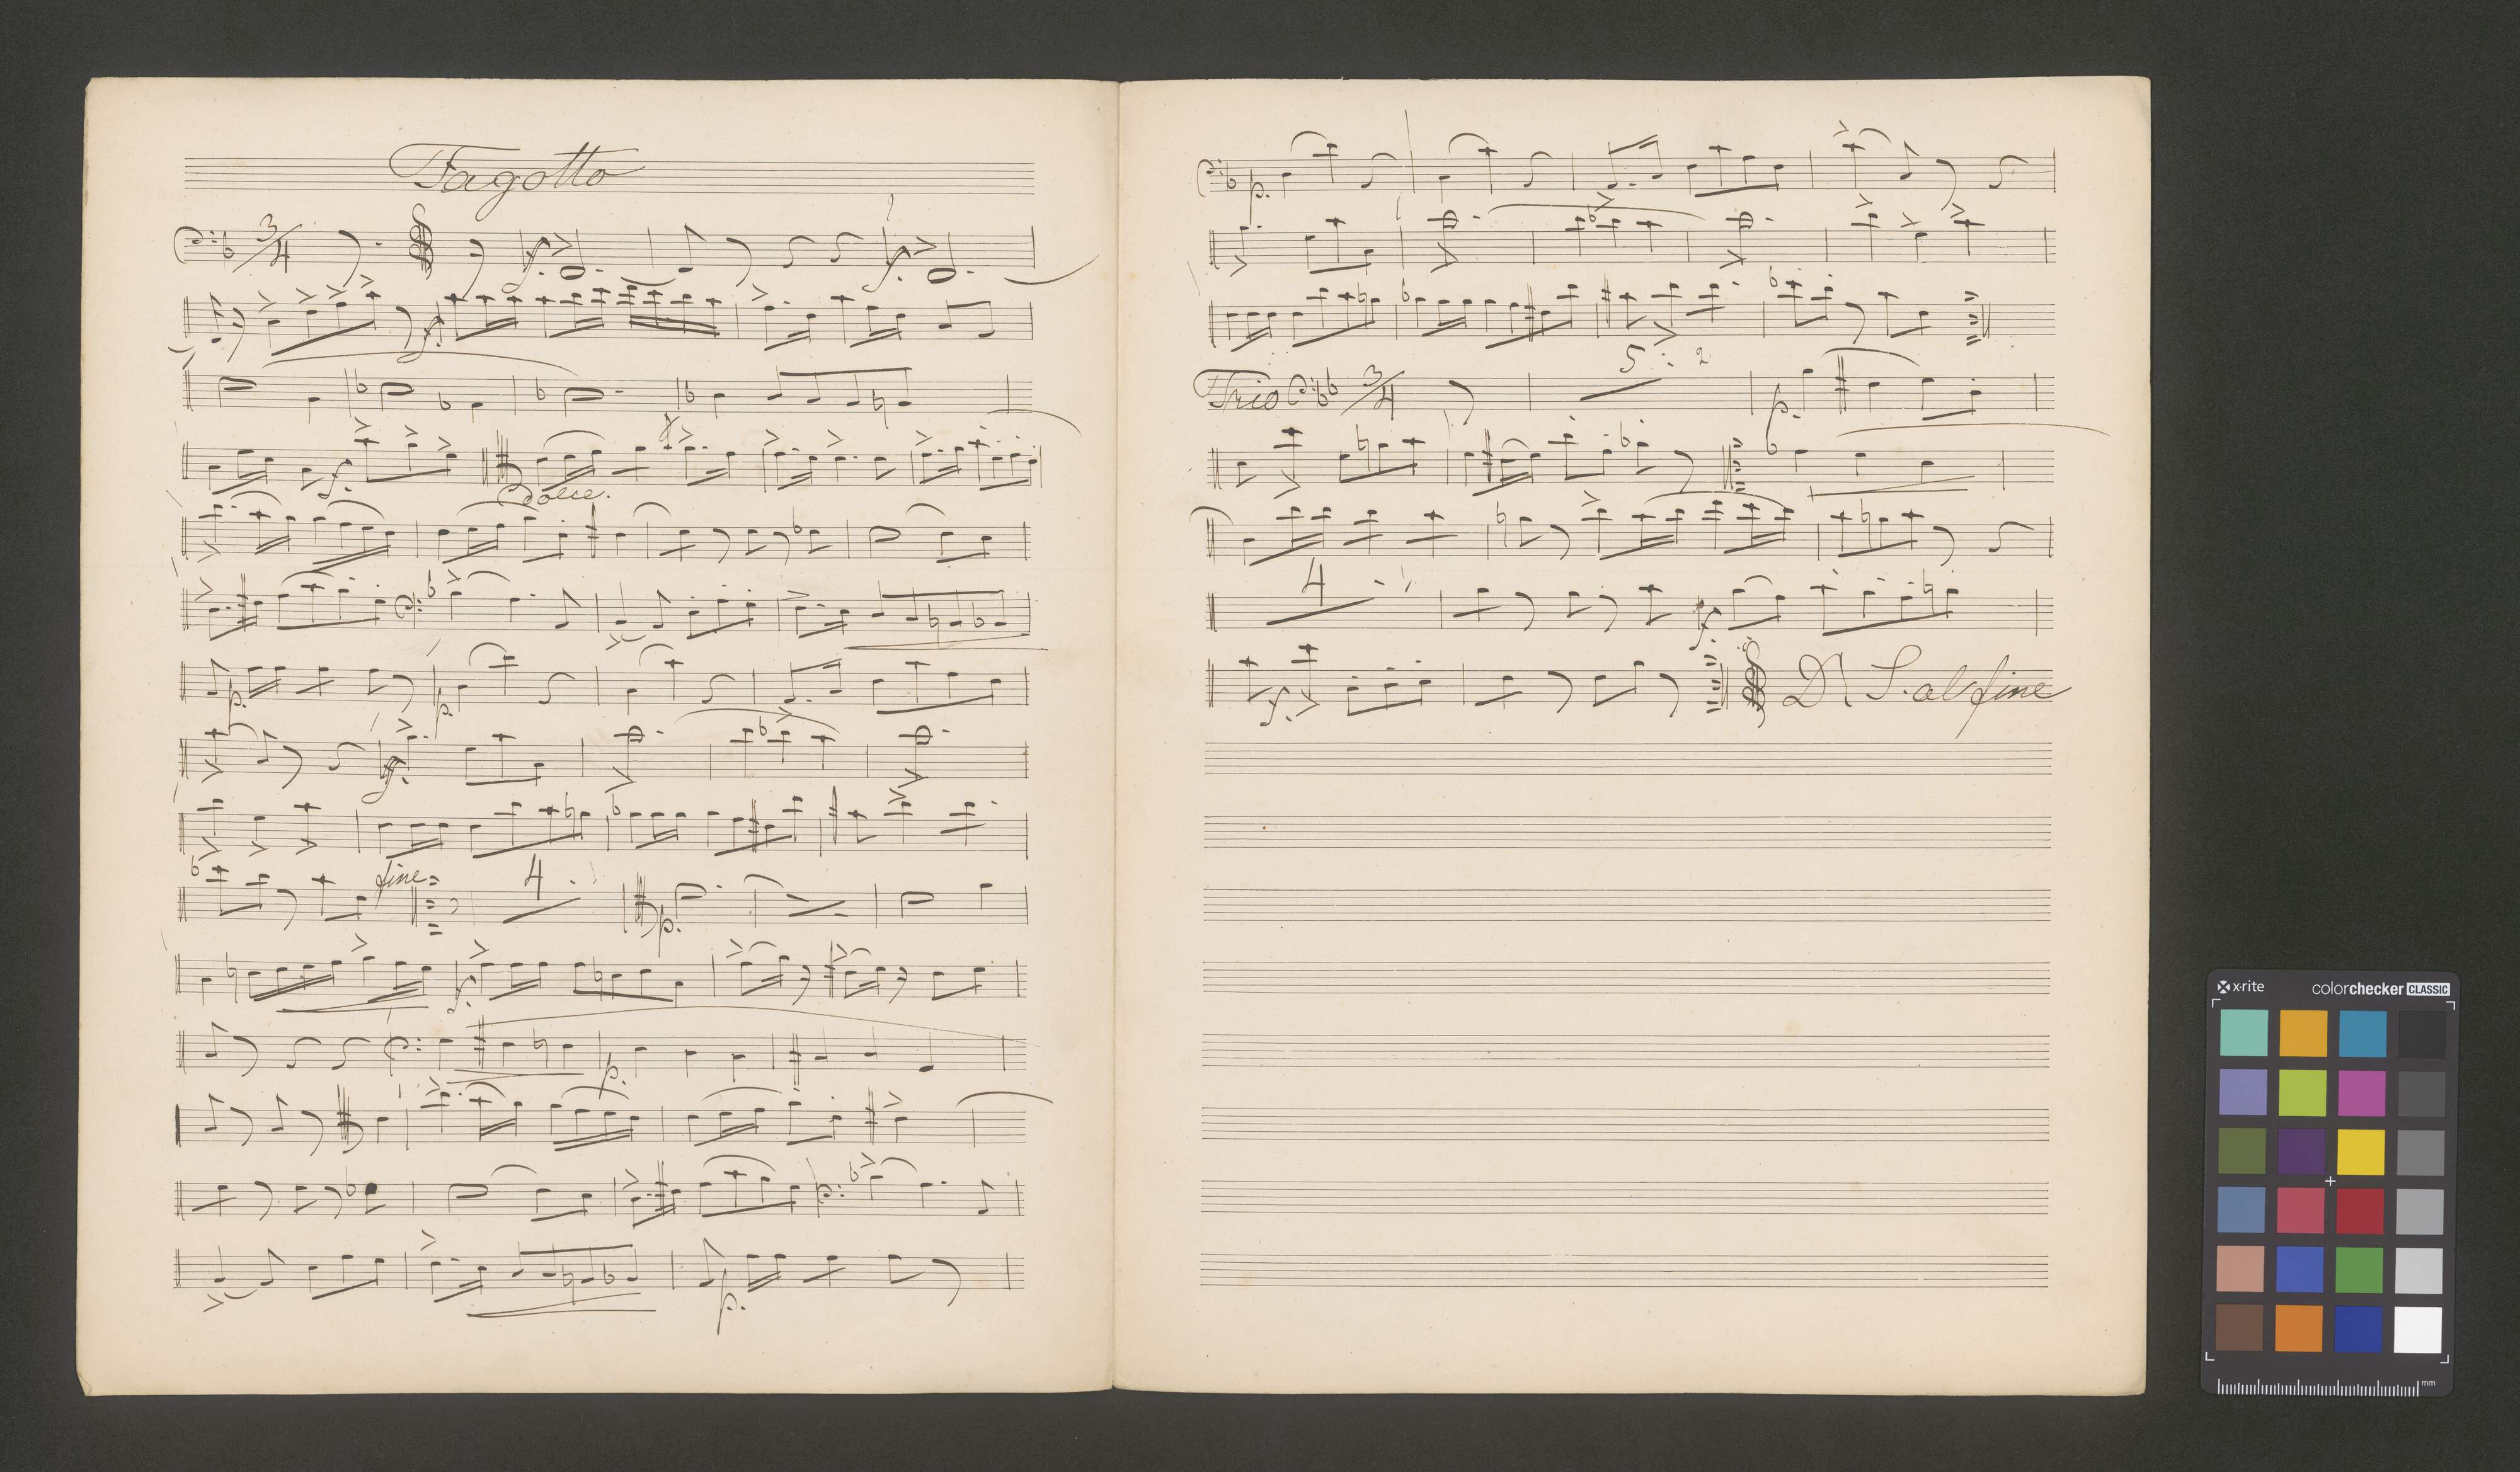 Fagotto
3/4
f. f.
f.
f.
dolce.
p. p.
ff.
fine 4
p.
f.
p.
p.
p.
5 2
Trio 3/4 p.
4
f
f. D S. al fine
x·rite colorchecker CLASSIC
mm